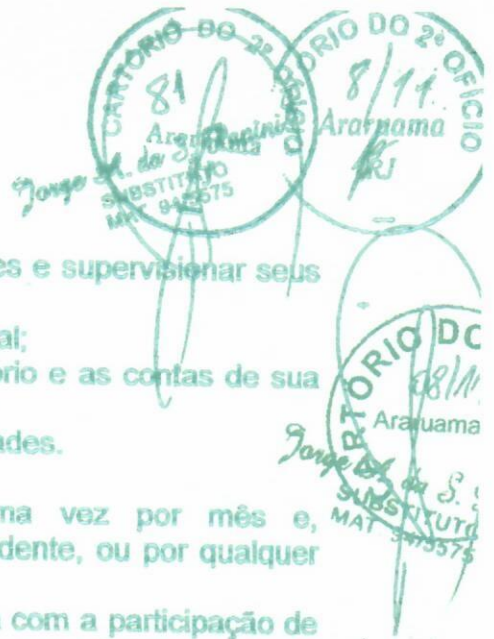 CARTÓRIO DO 2º OFÍCIO
81
Araruama
Jorge A. da S.
SUBSTITUTO
MAT 94/5575
ÓRIO DO 2º OFÍCIO
8/11
Araruama
RJ
es e supervisionar seus
al;
ório e as contas de sua
ades.
CARTÓRIO DO
08/11
Araruama
Jorge A. da S.
SUBSTITUTO
MAT 94/5575
ma vez por mês e,
dente, ou por qualquer
com a participação de